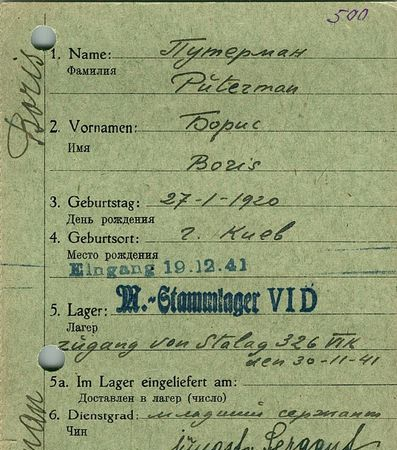 500
Boris
1. Name: Путерман
Фамилия
Püterman
2. Vornamen: Борис
Имя
Boris
3. Geburtstag: 27-1-1920
День рождения
4. Geburtsort: г. Киев
Место рождения
Eingang 19.12.41
5. Lager: M.-Stammlager VI D
Лагерь
zugang von Stalag 326 VIK
den 30-11-41
5a. Im Lager eingeliefert am:
Доставлен в лагерь (число)
6. Dienstgrad: младший сержант
Чин